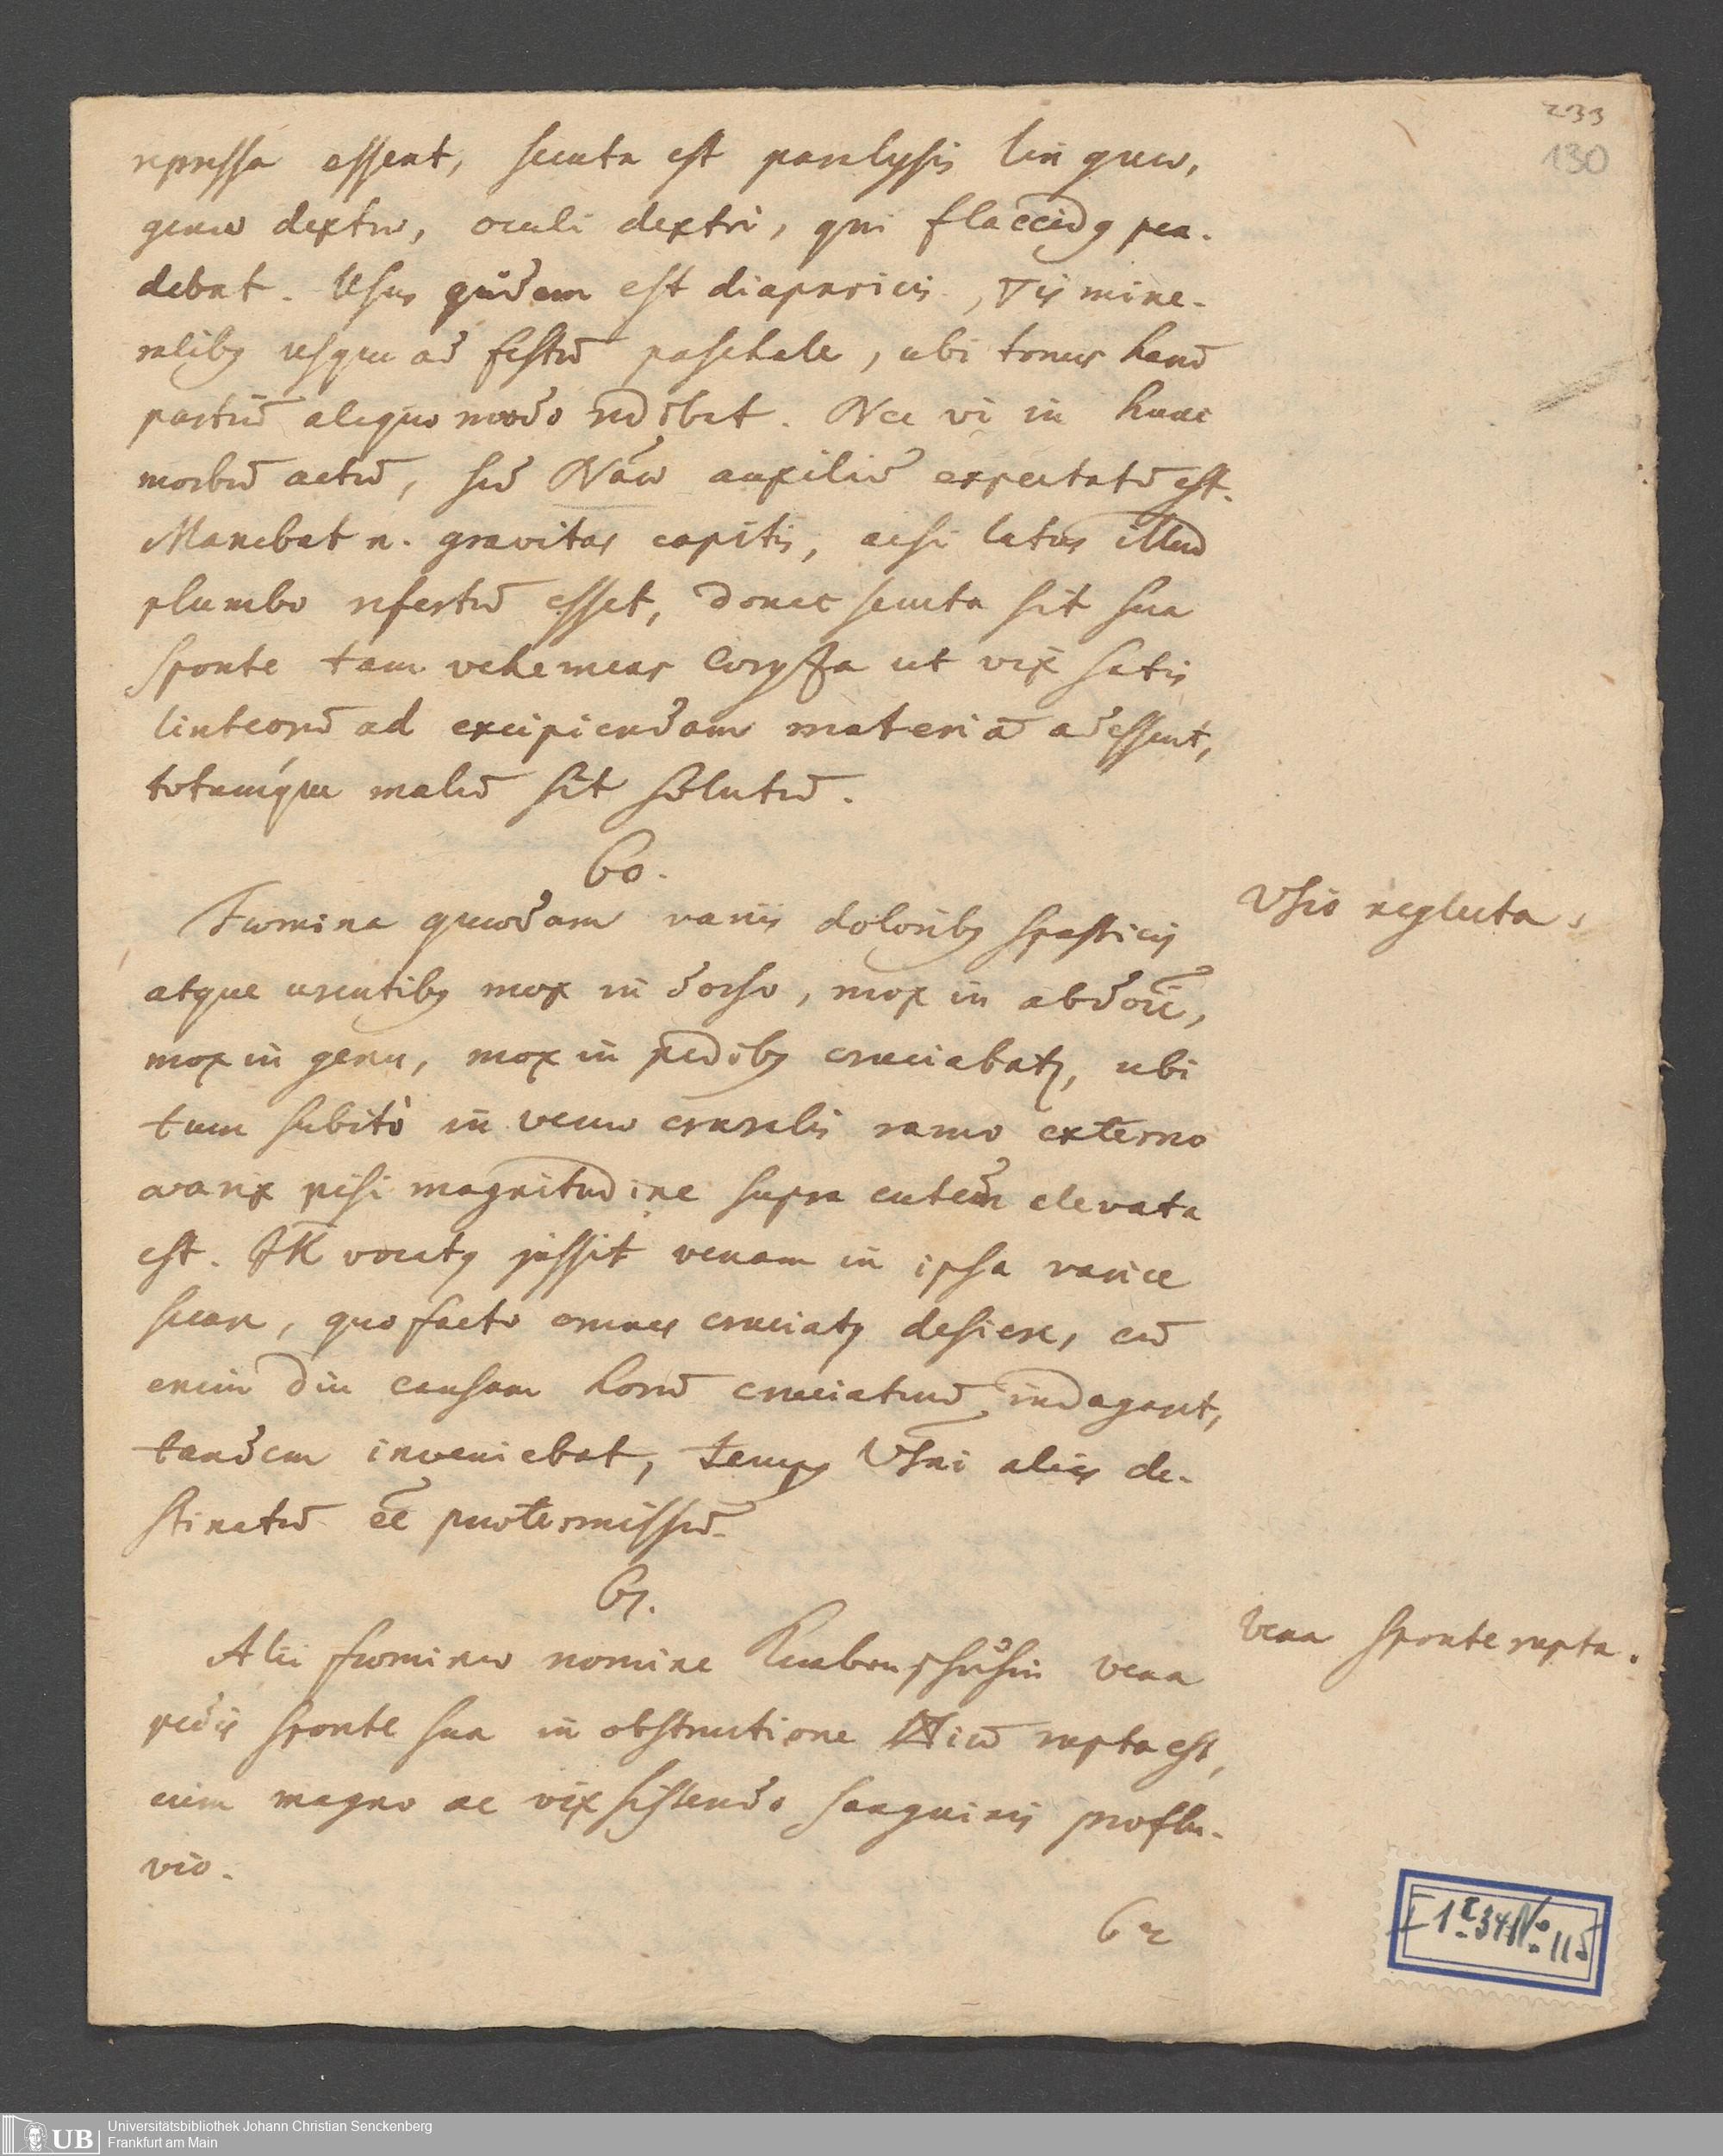 233
130
repressa essent, secuta est paralysis linguæ,
genæ dextræ, oculi dextri, qui flaccidq pen-
debat. Usus quidem est diapnoicis, ▽is mine-
ralibq usque ad festū paschale, ubi tonus harū
partiū aliquo modo redibat. Nec vi in hunc
morbū actū, sed Naæ auxiliū expectatū est.
Manebat n. gravitas capitis, acsi latus illud
plumbo refertū esset, donec secuta sit sua
sponte tam vehemens Coryza ut vix satis
linteorū ad excipiendam materiā adessent,
totumque malū sit solutū.
60.
Vsio neglecta.
Fœmina quædam variis doloribq spasticis
atque urentibq mox in dorso, mox in abdoīe,
mox in genu, mox in pedibq cruciabatr, ubi
tum subitò in venæ cruralis ramo externo
varix pisi magnitudine supra cutem elevata
est. vocatq jussit venam in ipsa varice
secare, quo facto omnes cruciatq desiere, cū
enim diu causam horū cruciatuū indagaret,
tandem inveniebat, tempq Vsni aliis de-
stinatū eē prætermissū.
61.
Vena sponte rupta.
Alii fœminæ nomine vena
pedis sponte sua in obstructione rupta est,
cum magno ac vix sistendo sanguinis proflu-
vio.
62
No 115
UB
Universitätsbibliothek Johann Christian Senckenberg
Frankfurt am Main